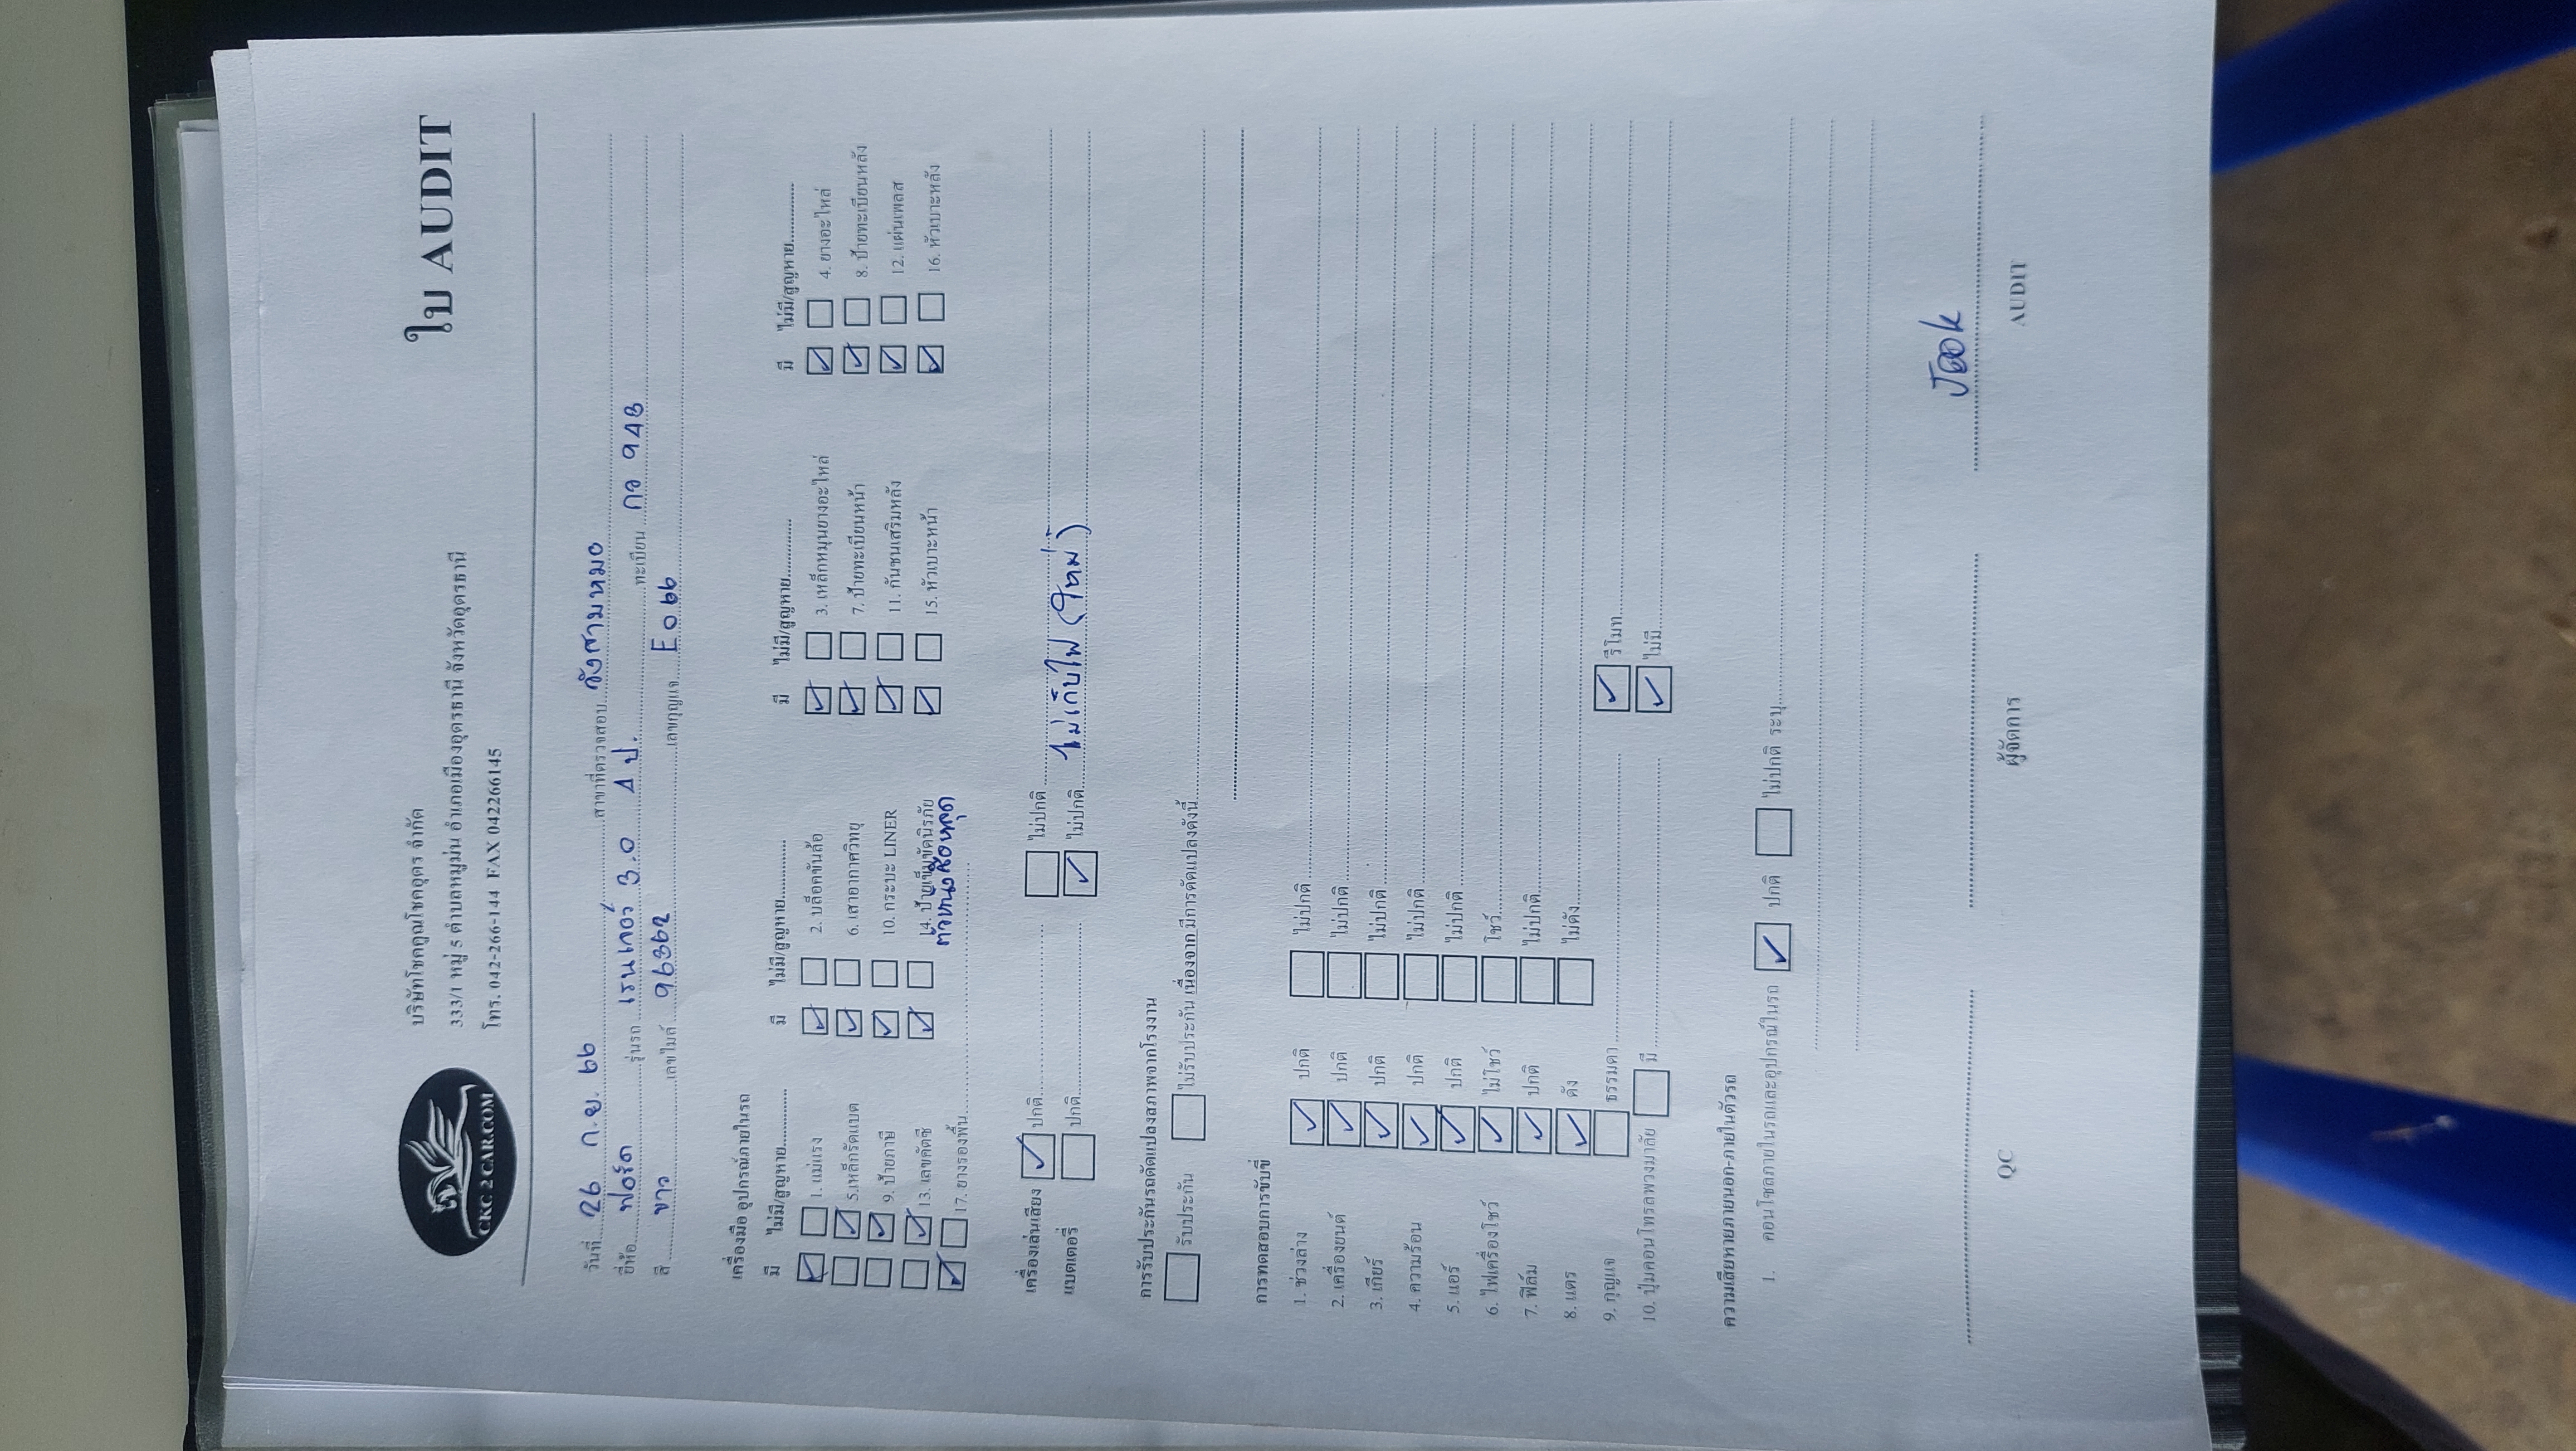 CKC 2 CAR.COM
บริษัทโชคคูณโชคอุดร จำกัด
ใบ AUDIT
333/1 หมู่ 5 ตำบลหมูม่น อำเภอเมืองอุดรธานี จังหวัดอุดรธานี
โทร. 042-266-144 FAX 042266145
วันที่ 26 ก.ย. 66 สาขาที่ตรวจสอบ วังสามหมอ
ยี่ห้อ ฟอร์ด รุ่นรถ เรนเกอร์ 3.0 4 ป. ทะเบียน กอ 948
สี ขาว เลขไมล์ 96362 เลขกุญแจ E066
เครื่องมือ อุปกรณ์ภายในรถ
มี ไม่มี/สูญหาย มี ไม่มี/สูญหาย มี ไม่มี/สูญหาย มี ไม่มี/สูญหาย
1. แม่แรง 2. บล็อคขันล้อ 3. เหล็กหมุนยางอะไหล่ 4. ยางอะไหล่
5.เหล็กรัดแบต 6. เสาอากาศวิทยุ 7. ป้ายทะเบียนหน้า 8. ป้ายทะเบียนหลัง
9. ป้ายภาษี 10. กระบะ LINER 11. กันชนเสริมหลัง 12. แผ่นเพลส
13. เลขคัตซี 14. ป้ายเข็มขัดนิรภัย 15. หัวเบาะหน้า 16. หัวเบาะหลัง
17. ยางรองพื้น
ตัวหนังสือหลุด
เครื่องเล่นเสียง ปกติ ไม่ปกติ
แบตเตอรี่ ปกติ ไม่ปกติ ไม่เก็บไฟ (ใหม่)
การรับประกันรถดัดแปลงสภาพจากโรงงาน
รับประกัน ไม่รับประกัน เนื่องจาก มีการดัดแปลงดังนี้
การทดสอบการขับขี่
1. ช่วงล่าง ปกติ ไม่ปกติ
2. เครื่องยนต์ ปกติ ไม่ปกติ
3. เกียร์ ปกติ ไม่ปกติ
4. ความร้อน ปกติ ไม่ปกติ
5. แอร์ ปกติ ไม่ปกติ
6. ไฟเครื่องโชว์ ไม่โชว์ โชว์
7. ฟิล์ม ปกติ ไม่ปกติ
8. แตร ดัง ไม่ดัง
9. กุญแจ ธรรมดา รีโมท
10. ปุ่มคอนโทรลพวงมาลัย มี ไม่มี
ความเสียหายภายนอก-ภายในตัวรถ
1. คอนโซลภายในรถและอุปกรณ์ในรถ ปกติ ไม่ปกติ ระบุ
QC ผู้จัดการ AUDIT